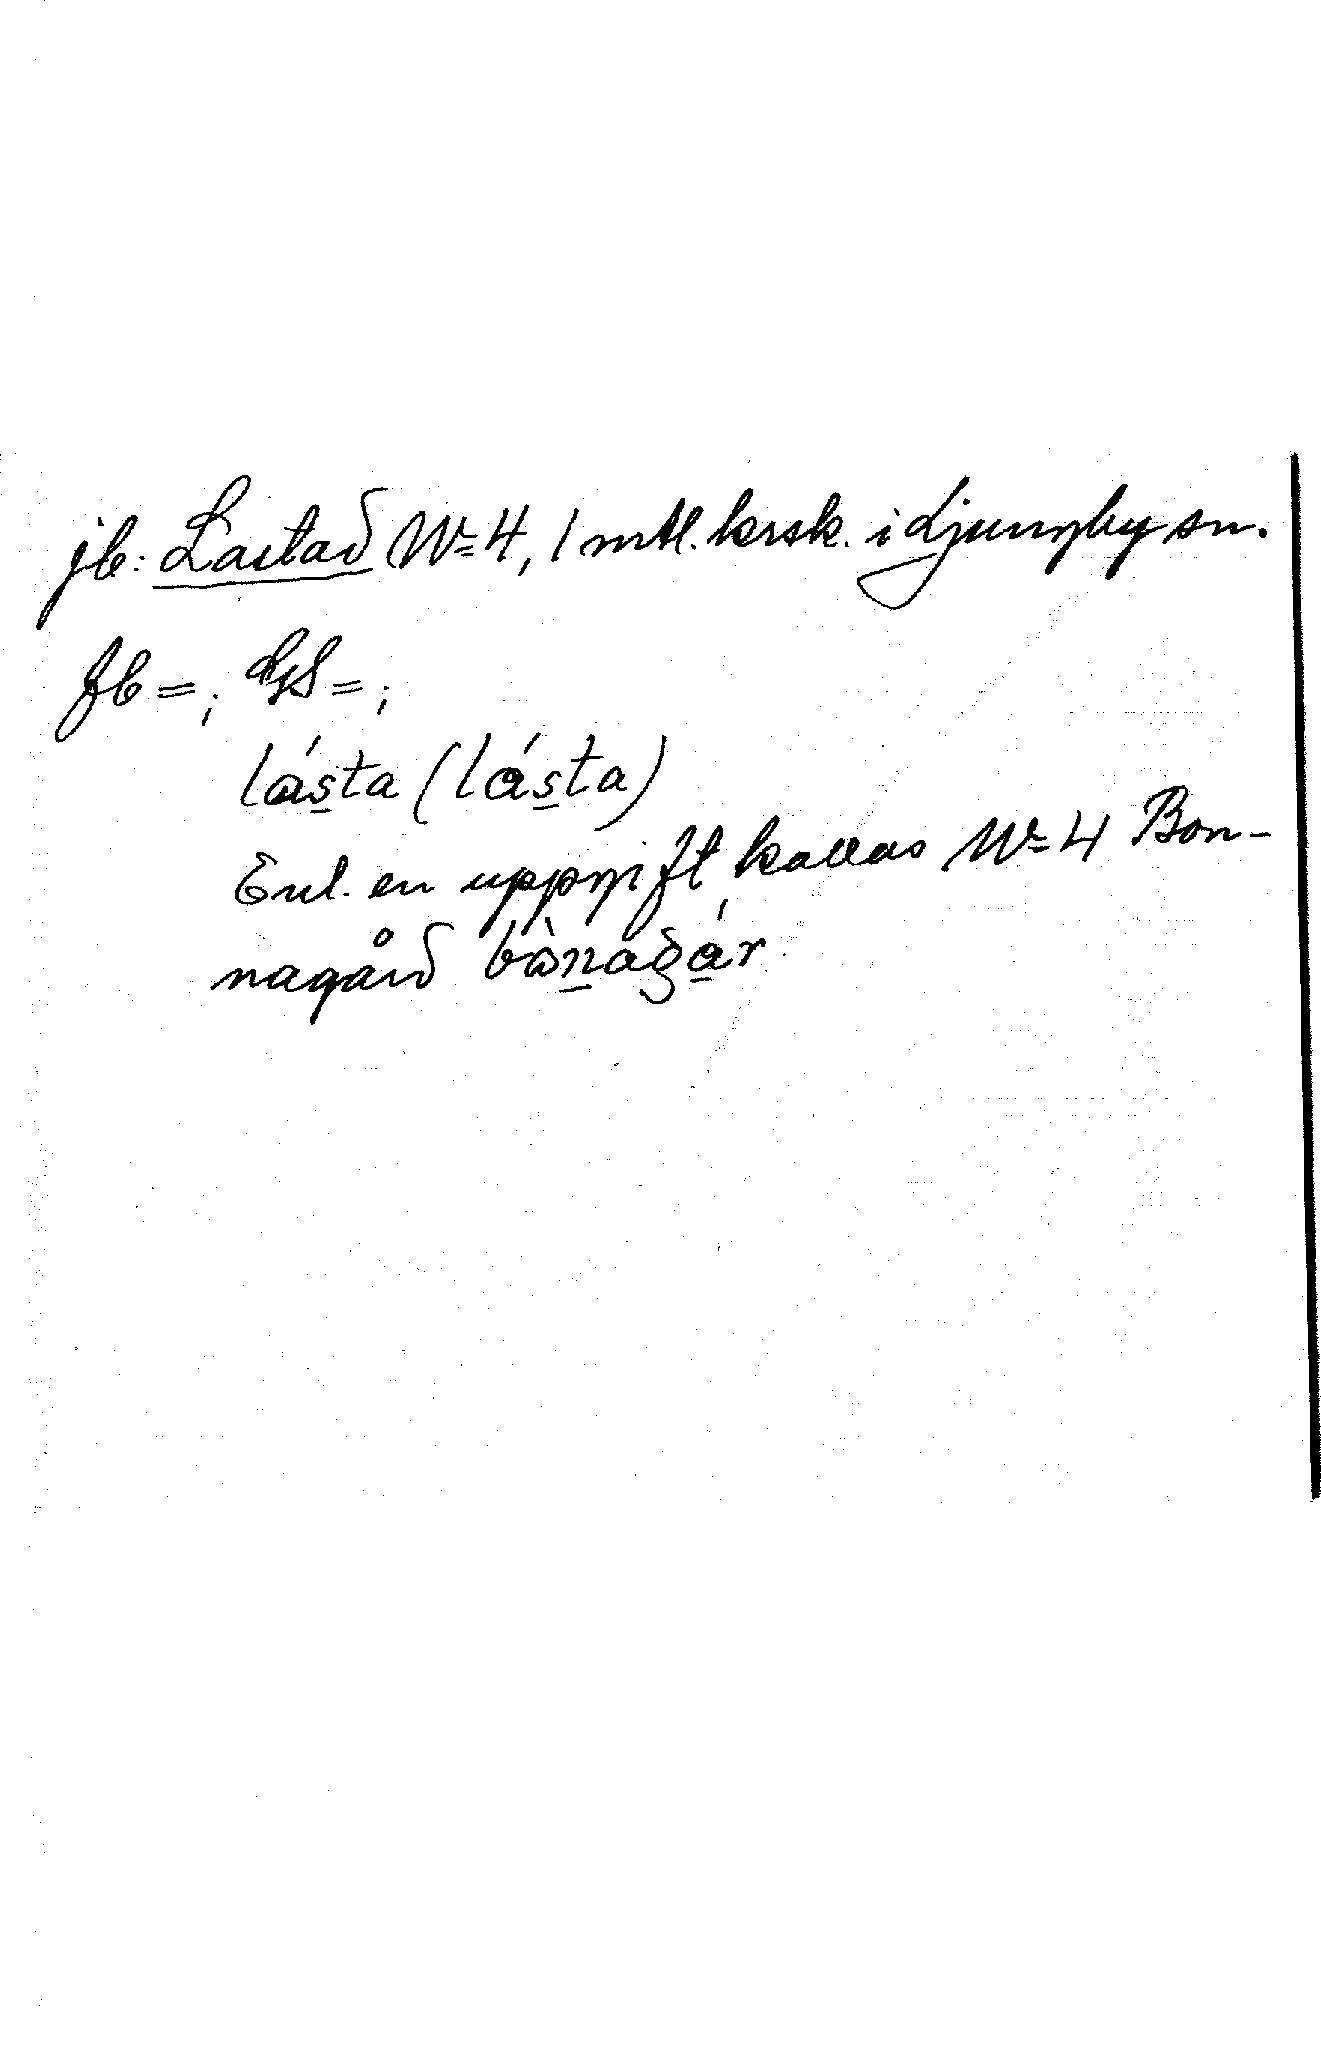 jb: Lastad No 4, 1 mtl. krsk. i Ljungby sn.
fb =; GS =;
lásta (lásta)
Enl. en uppgift kallas No 4 Bon-
nagård bònagár